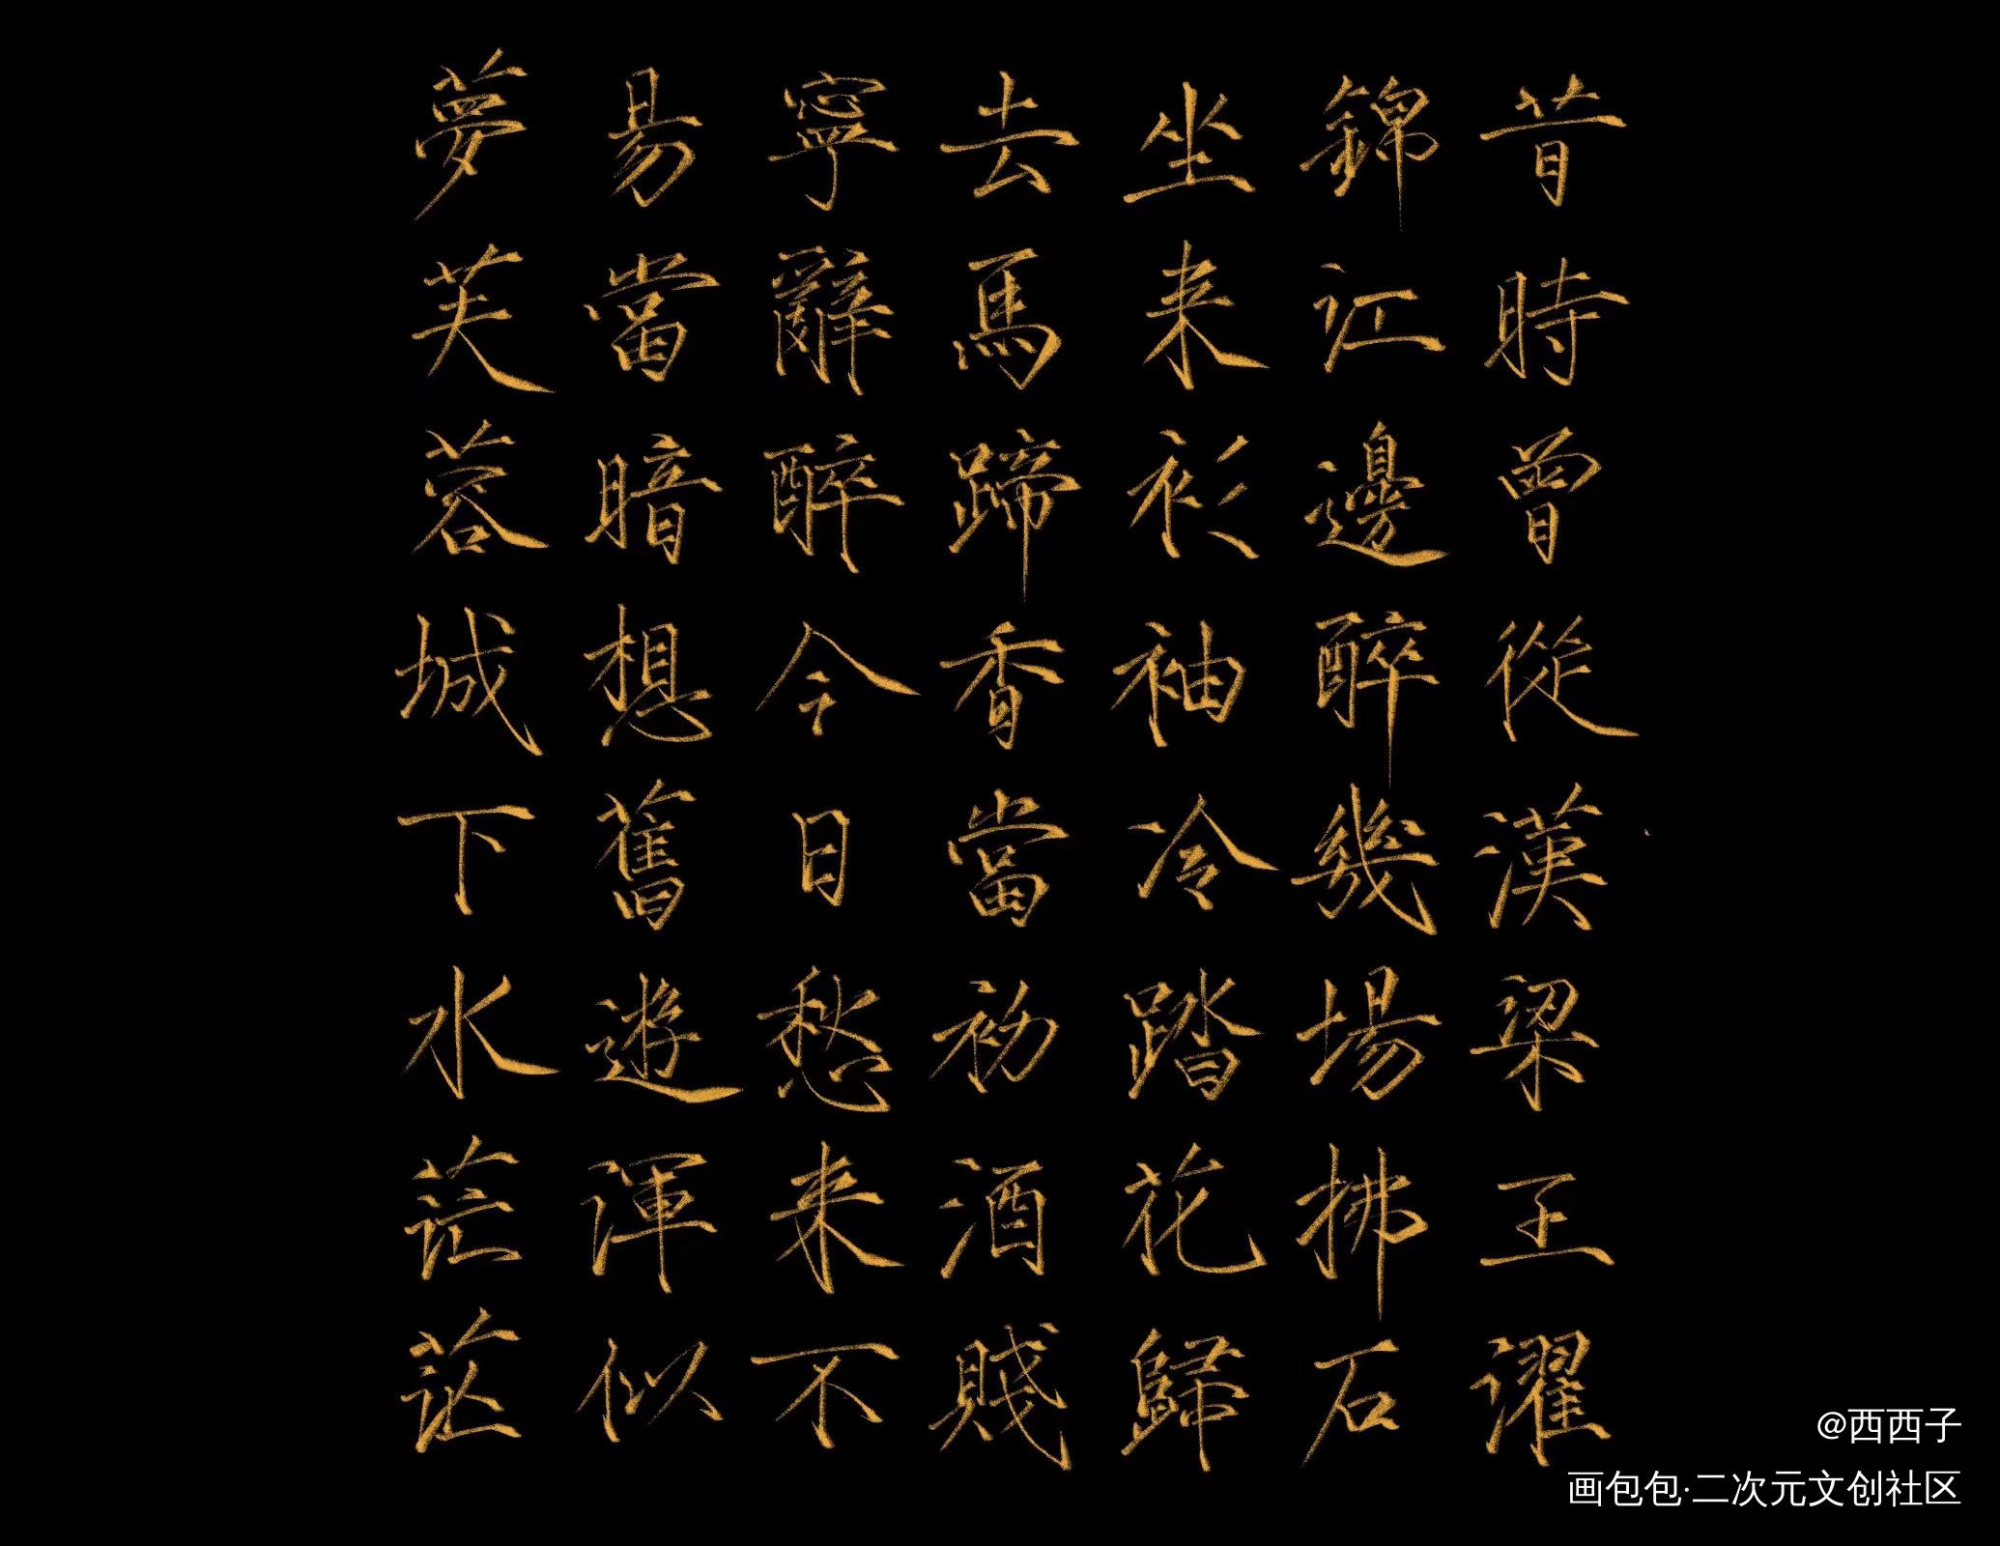 昔時曾從漢梁王濯
錦江邊醉幾場拂石
坐来衫袖冷踏花歸
去馬蹄香當初酒賤
寧辭醉今日愁来不
易當暗想舊遊渾似
夢芙蓉城下水茫茫
@西西子
画包包·二次元文创社区